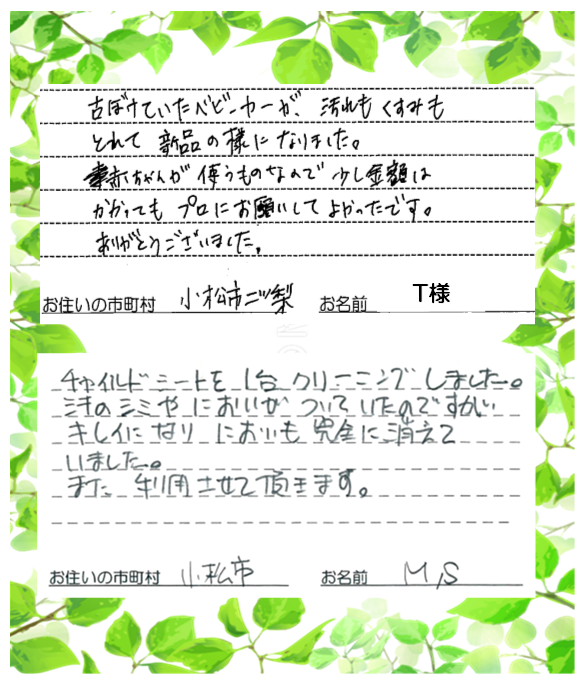 古ぼけていたベビーカーが、汚れもくすみも
とれて新品の様になりました。
赤ちゃんが使うものなので少し金額は
かかってもプロにお願いしてよかったです。
ありがとうございました。
お住いの市町村 小松市二ツ梨 お名前 T様
チャイルドシートを1台クリーニングしました。
汗のシミやにおいがついていたのですがい
キレイになりにおいも完全に消えて
いました。
また利用させて頂きます。
お住いの市町村 小松市 お名前 M,S